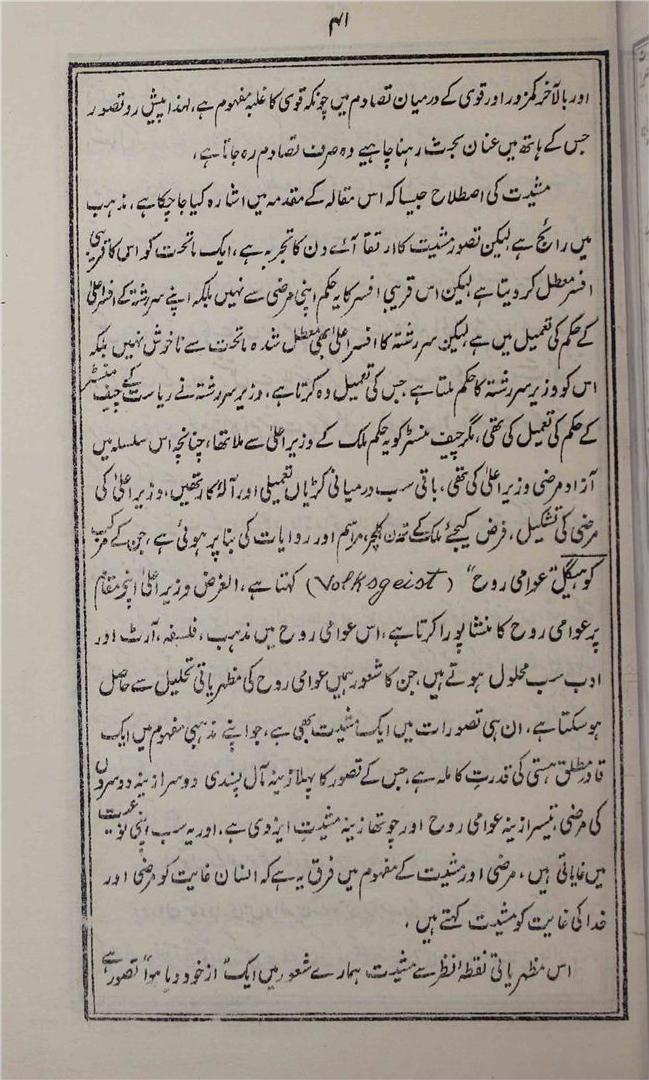 ۴۱
اور بالآخر کمزور اور قوی کے درمیان تصادم میں چونکہ قوی کا غلبہ مفہوم ہے، لہذا پیش رو تصور
جس کے ہاتھ میں عنان بحث رہنا چاہیے وہ صرف تصادم رہ جاتا ہے،
مشیت کی اصطلاح جیسا کہ اس مقالہ کے مقدمہ میں اشارہ کیا جا چکا ہے، مذہب
میں رائج ہے لیکن تصور مشیت کا ارتقا آئے دن کا تجربہ ہے، ایک ماتحت کو اس کا قریبی
افسر معطل کر دیتا ہے لیکن اس قریبی افسر کا یہ حکم اپنی مرضی سے نہیں بلکہ اپنے سررشتہ کے افسر اعلیٰ
کے حکم کی تعمیل میں ہے لیکن سررشتہ کا افسر اعلیٰ بھی معطل شدہ ماتحت سے ناخوش نہیں بلکہ
اس کو وزیر سررشتہ کا حکم ملتا ہے جس کی تعمیل وہ کرتا ہے، وزیر سررشتہ نے ریاست کے چیف منسٹر
کے حکم کی تعمیل کی تھی، مگر چیف منسٹر کو یہ حکم ملک کے وزیر اعلیٰ سے ملا تھا، چنانچہ اس سلسلہ میں
آزاد مرضی وزیر اعلیٰ کی تھی، باقی سب درمیانی کڑیاں تعمیلی اور آلۂ کار تھیں، وزیر اعلیٰ کی
مرضی کی تشکیل، فرض کیجئے ملک کے تمدن کلچر، مراسم اور روایات کی بنا پر ہوئی ہے، جن کے مرکب
کو ہیگل "عوامی روح" (Volksgeist) کہتا ہے، الغرض وزیر اعلیٰ اپنی مقام
پر عوامی روح کا منشا پورا کرتا ہے، اس عوامی روح میں مذہب، فلسفہ، آرٹ اور
ادب سب محلول ہوتے ہیں، جن کا شعور ہمیں عوامی روح کی مظہریاتی تحلیل سے حاصل
ہو سکتا ہے، ان ہی تصورات میں ایک مشیت بھی ہے، جو اپنے مذہبی مفہوم میں ایک
قادر مطلق ہستی کی قدرت کاملہ ہے، جس کے تصور کا پہلا زینہ مآل پسندی دوسرا زینہ دوسروں
کی مرضی، تیسرا زینہ عوامی روح اور چوتھا زینہ مشیت ایزدی ہے، اور یہ سب اپنی نوعیت
میں غایاتی ہیں، مرضی اور مشیت کے مفہوم میں فرق یہ ہے کہ انسان غایت کو مرضی اور
خدا کی غایت کو مشیت کہتے ہیں،
اس مظہریاتی نقطۂ نظر سے مشیت ہمارے شعور میں ایک "از خود دیا ہوا" تصور ہے